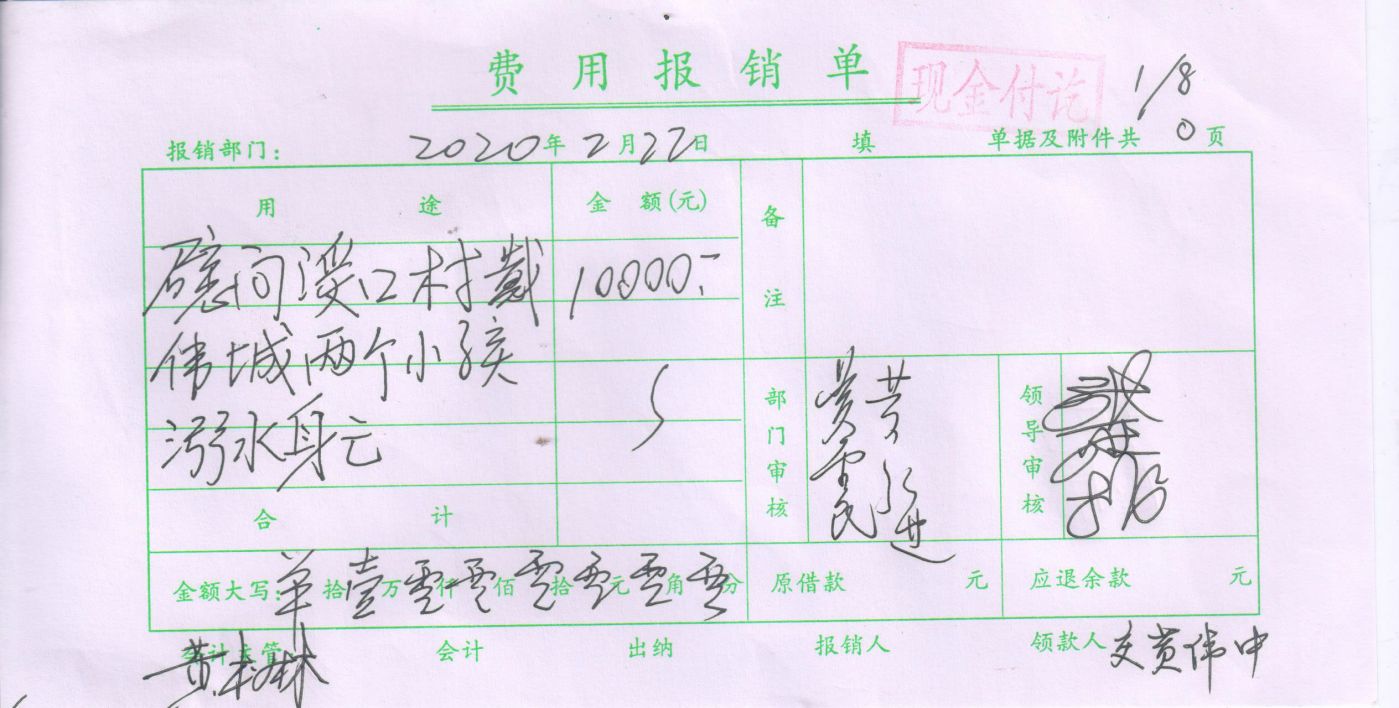 费用报销单
现金付讫
1/8
报销部门： 2020年2月22日 填 单据及附件共0页
用途 金额(元) 备注
慰问溪口村戴 10000.-
伟城两个小孩
溺水身亡
部门审核 黄雪民 领导审核
合计
金额大写： 拾壹万零仟零佰零拾零元零角零分 原借款 元 应退余款 元
会计主管 会计 出纳 报销人 领款人 交黄伟中
黄林